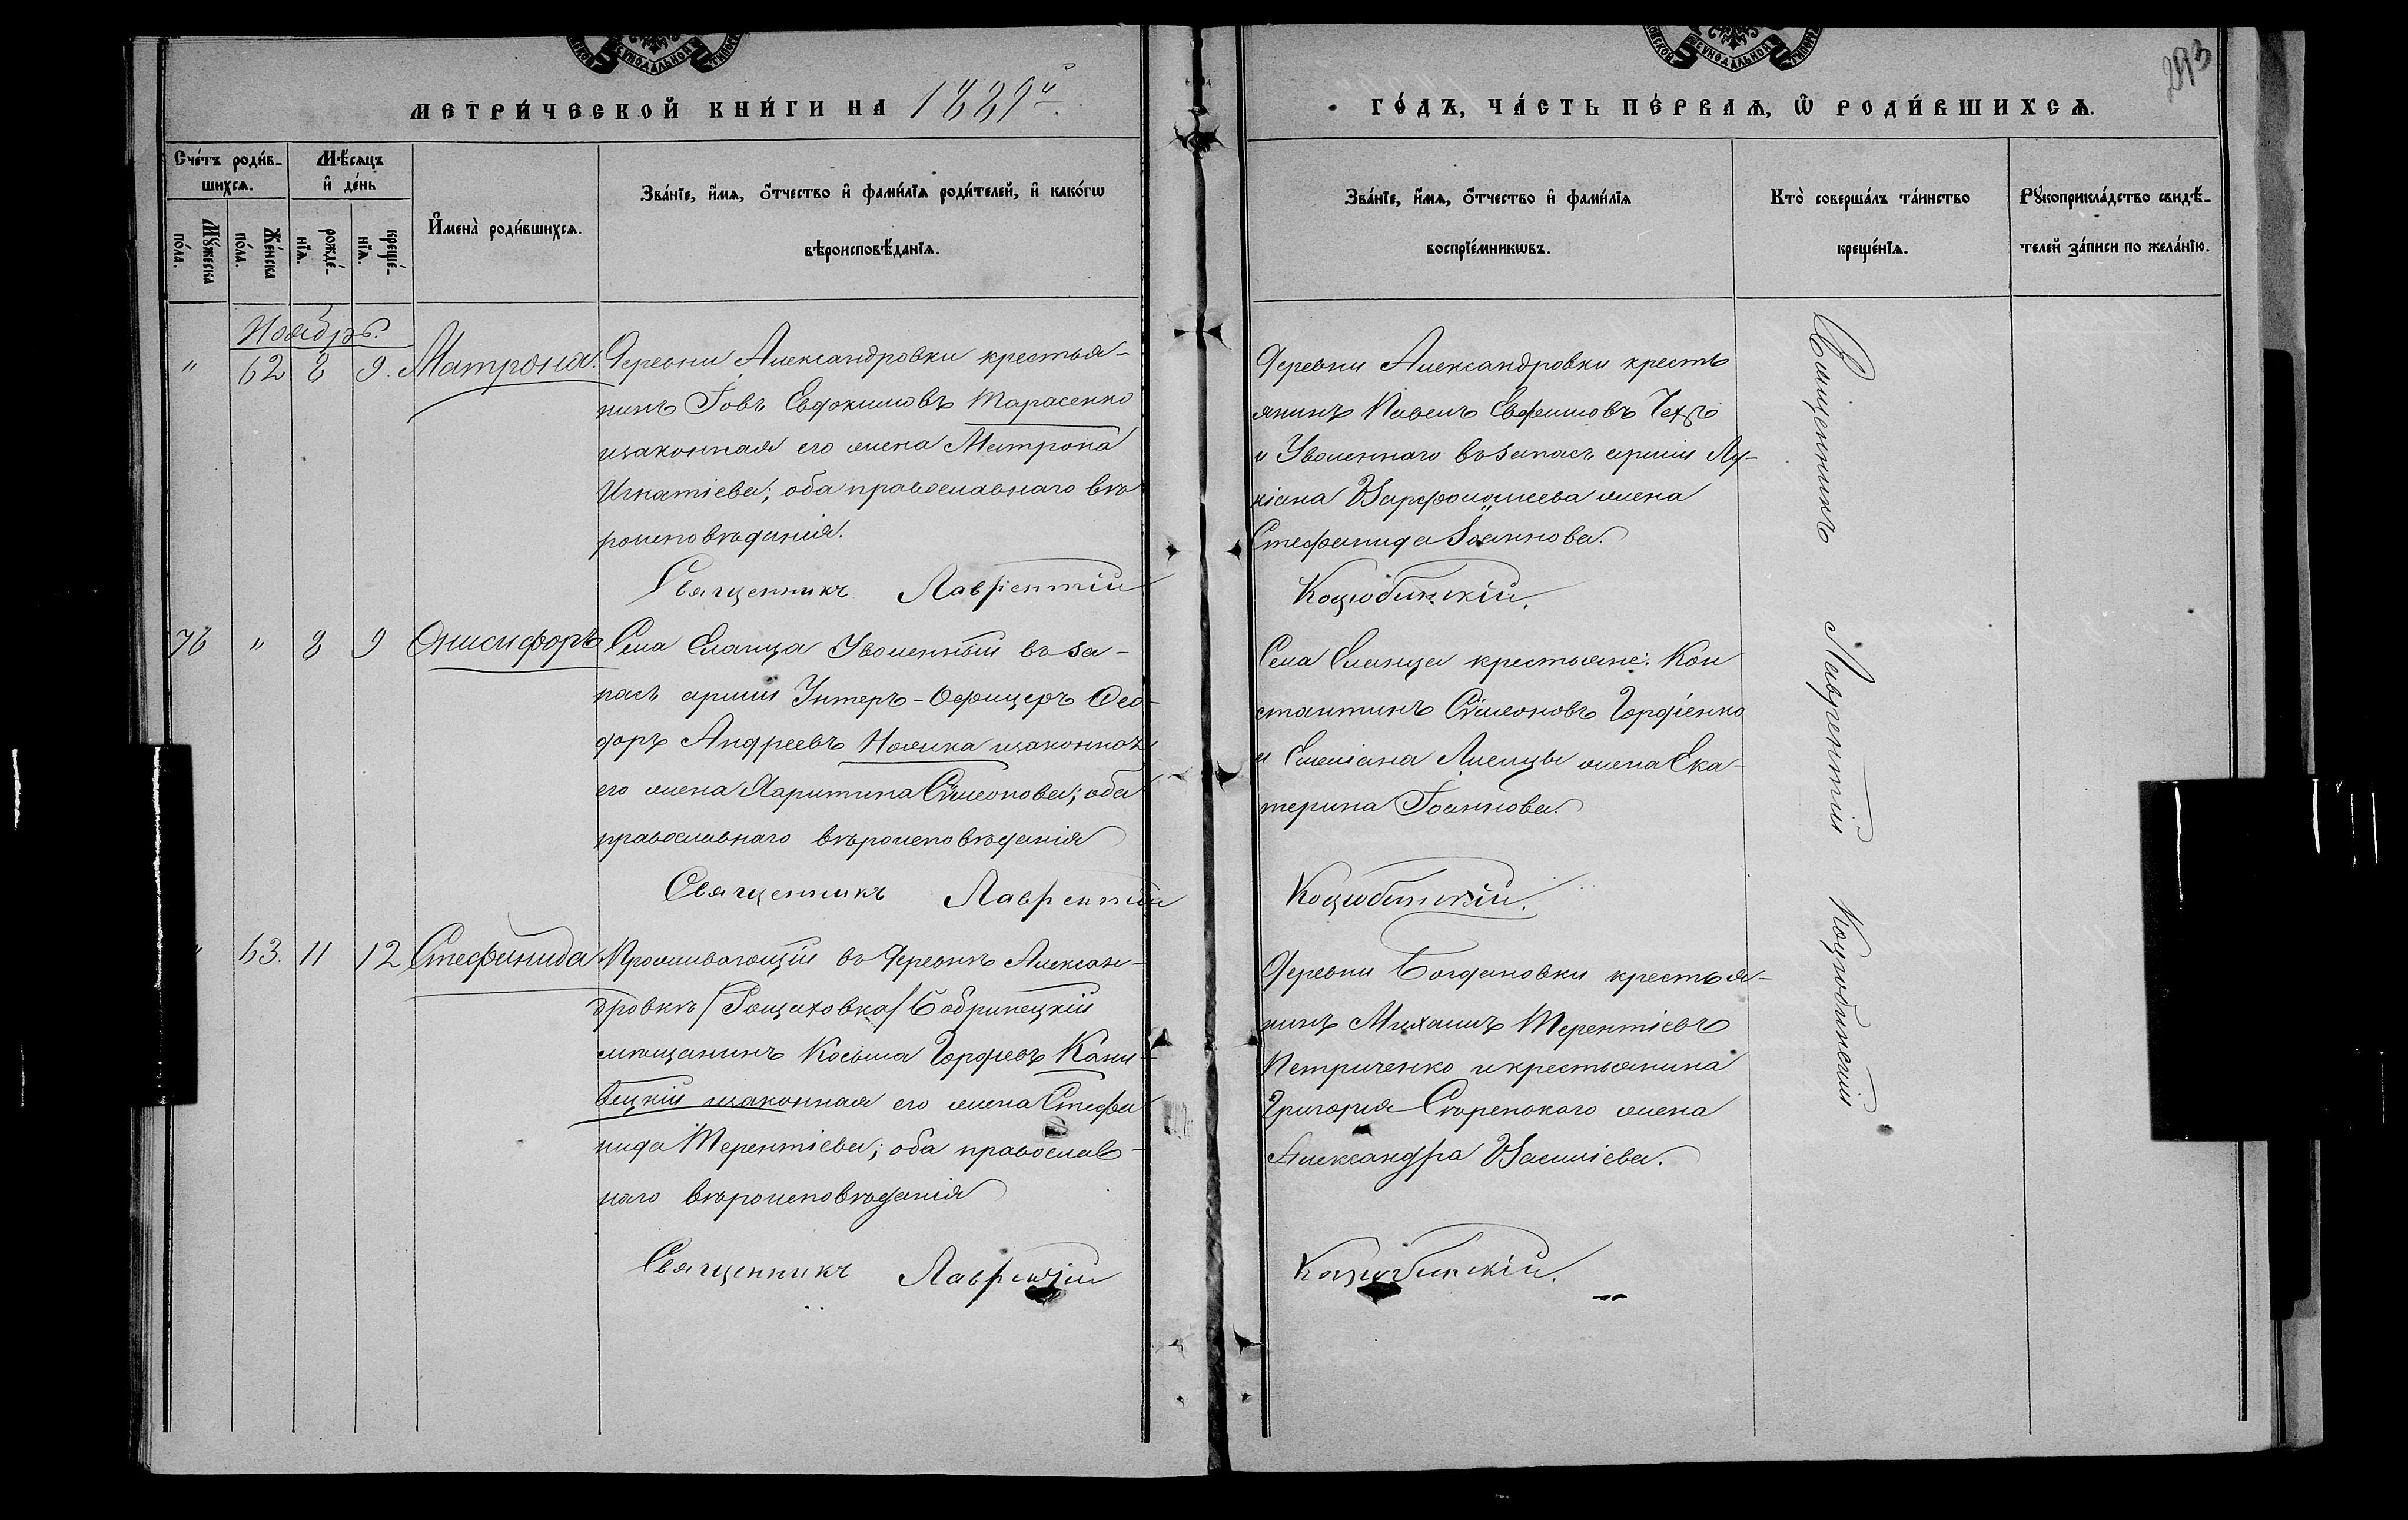 293
МЕТРИ́ЧЕСКОЙ КНИ́ГИ НА 1889й
ГО́ДЪ, ЧА́СТЬ ПЕ́РВАѦ, Ѽ РОДИ́ВШИХСѦ.
Сче́тъ роди́в-
шихсѧ.
Мѣ́сѧцъ
и҆ де́нь
Мꙋ́жеска
по́ла.
Же́нска
по́ла.
рожде́-
нїѧ.
креще́-
нїѧ.
И҆мена̀ роди́вшихсѧ.
Зва́нїе, и҆́мѧ, ѻ҆́тчество и҆ фами́лїѧ роди́телей, и҆ како́гѡ
вѣроисповѣ́данїѧ.
Зва́нїе, и҆́мѧ, ѻ҆́тчество и҆ фами́лїѧ
воспрїе́мникѡвъ.
Кто̀ соверша́лъ та́инство
креще́нїѧ.
Рꙋкоприкла́дство свидѣ́-
телей за́писи по жела́нїю.
Ноябрь.
" 62 8 9. Матрона.
Деревни Александровки крестья-
нинъ Іовъ Евдокимовъ Тарасенко
изаконная его жена Матрона
Игнатіева; оба православнаго вѣ
роисповѣданія.
Священникъ Лаврентій
Деревни Александровки кресть
янинъ Павелъ Евфимовъ
и Уволеннаго въ запасъ арміи Лу-
кіана Варфоломеева жена
Стефанида Іоаннова.
Коцюбинскій.
76 " 8 9 Онисифоръ
Села Еланца Уволенный въ за-
пасъ арміи Унтеръ-Офицеръ Ѳео-
доръ Андреевъ изаконная
его жена Харитина Сѵмеонова; оба
православнаго вѣроисповѣданія
Священникъ Лаврентій
Села Еланца крестьяне: Кон
стантинъ Сѵмеоновъ Гордіенко
и Емиліана жена Ека-
терина Іоаннова.
Коцюбинскій.
" 63. 11 12 Стефанида
Проживающій въ деревнѣ Алексан-
дровкѣ /Рощаховка/ Бобринецкій
мѣщанинъ Косьма Гордіевъ Кани-
вецкій изаконная его жена Стефа
нида Терентіева; оба православ-
наго вѣроисповѣданія
Священникъ Лаврентій
Деревни Богдановки крестья-
нинъ Михаилъ Терентіевъ
Петриченко и крестьянина
Григорія жена
Александра Василіева.
Коцюбинскій.
Священникъ Лаврентій Коцюбинскій